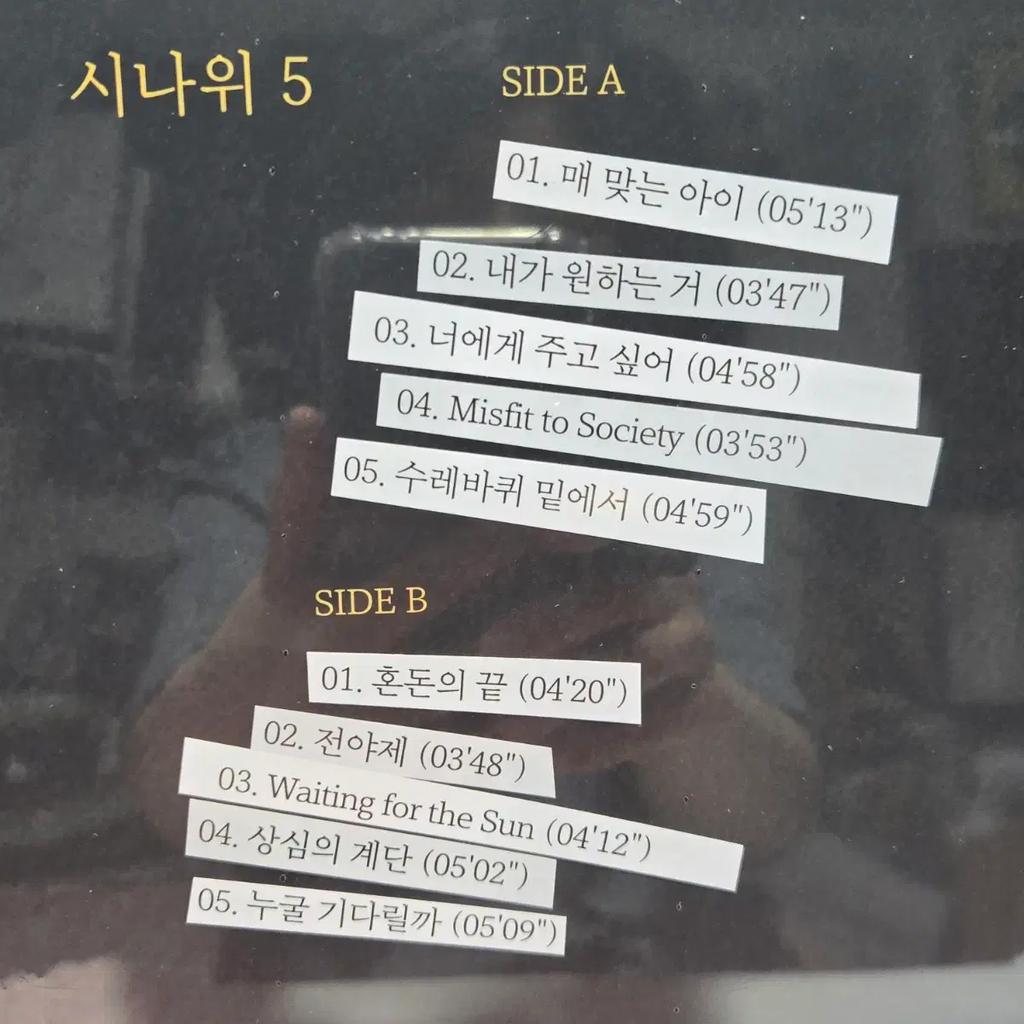 시나위 5
SIDE A
01. 매 맞는 아이 (05'13")
02. 내가 원하는 거 (03'47")
03. 너에게 주고 싶어 (04'58")
04. Misfit to Society (03'53")
05. 수레바퀴 밑에서 (04'59")
SIDE B
01. 혼돈의 끝 (04'20")
02. 전야제 (03'48")
03. Waiting for the Sun (04'12")
04. 상심의 계단 (05'02")
05. 누굴 기다릴까 (05'09")